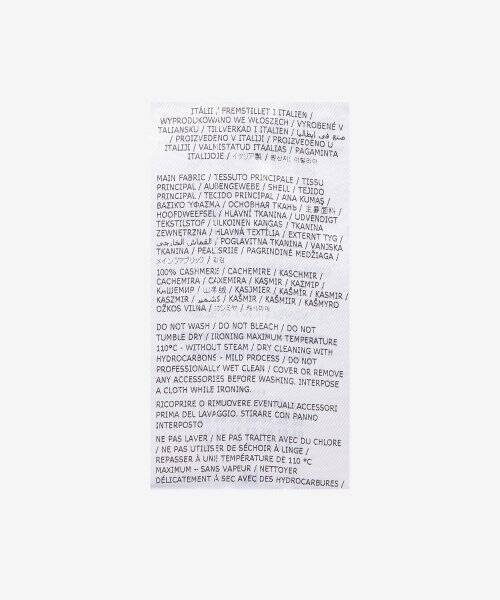 ITÁLII / FREMSTILLET I ITALIEN /
WYPRODUKOWANO WE WŁOSZECH / VYROBENÉ V
TALIANSKU / TILLVERKAD I ITALIEN / صنع في إيطاليا
/ PROIZVEDENO V ITALIJI / PROIZVEDENO U
ITALIJI / VALMISTATUD ITAALIAS / PAGAMINTA
ITALIJOJE / イタリア製 / 원산지: 이탈리아
MAIN FABRIC / TESSUTO PRINCIPALE / TISSU
PRINCIPAL / AUßENGEWEBE / SHELL / TEJIDO
PRINCIPAL / TECIDO PRINCIPAL / ANA KUMAŞ /
ΒΑΣΙΚΟ ΎΦΑΣΜΑ / ОСНОВНАЯ ТКАНЬ / 主要面料 /
HOOFDWEEFSEL / HLAVNÍ TKANINA / UDVENDIGT
TEKSTILSTOF / ULKOINEN KANGAS / TKANINA
ZEWNĘTRZNA / HLAVNÁ TEXTÍLIA / EXTERNT TYG /
القماش الخارجي / POGLAVITNA TKANINA / VANJSKA
TKANINA / PEALISRIIE / PAGRINDINĖ MEDŽIAGA /
メインファブリック / 겉감
100% CASHMERE / CACHEMIRE / KASCHMIR /
CACHEMIRA / CAXEMIRA / KAŞMIR / ΚΑΣΜΙΡ /
КАШЕМИР / 山羊绒 / KASJMIER / KAŠMÍR / KASMIR /
KASZMIR / كشمير / KAŠMIR / KAŠMIIR / KAŠMYRO
OŽKOS VILNA / カシミヤ / 캐시미어
DO NOT WASH / DO NOT BLEACH / DO NOT
TUMBLE DRY / IRONING MAXIMUM TEMPERATURE
110°C - WITHOUT STEAM / DRY CLEANING WITH
HYDROCARBONS - MILD PROCESS / DO NOT
PROFESSIONALLY WET CLEAN / COVER OR REMOVE
ANY ACCESSORIES BEFORE WASHING. INTERPOSE
A CLOTH WHILE IRONING.
RICOPRIRE O RIMUOVERE EVENTUALI ACCESSORI
PRIMA DEL LAVAGGIO. STIRARE CON PANNO
INTERPOSTO
NE PAS LAVER / NE PAS TRAITER AVEC DU CHLORE
/ NE PAS UTILISER DE SÉCHOIR À LINGE /
REPASSER À UNE TEMPÉRATURE DE 110 °C
MAXIMUM – SANS VAPEUR / NETTOYER
DÉLICATEMENT À SEC AVEC DES HYDROCARBURES /